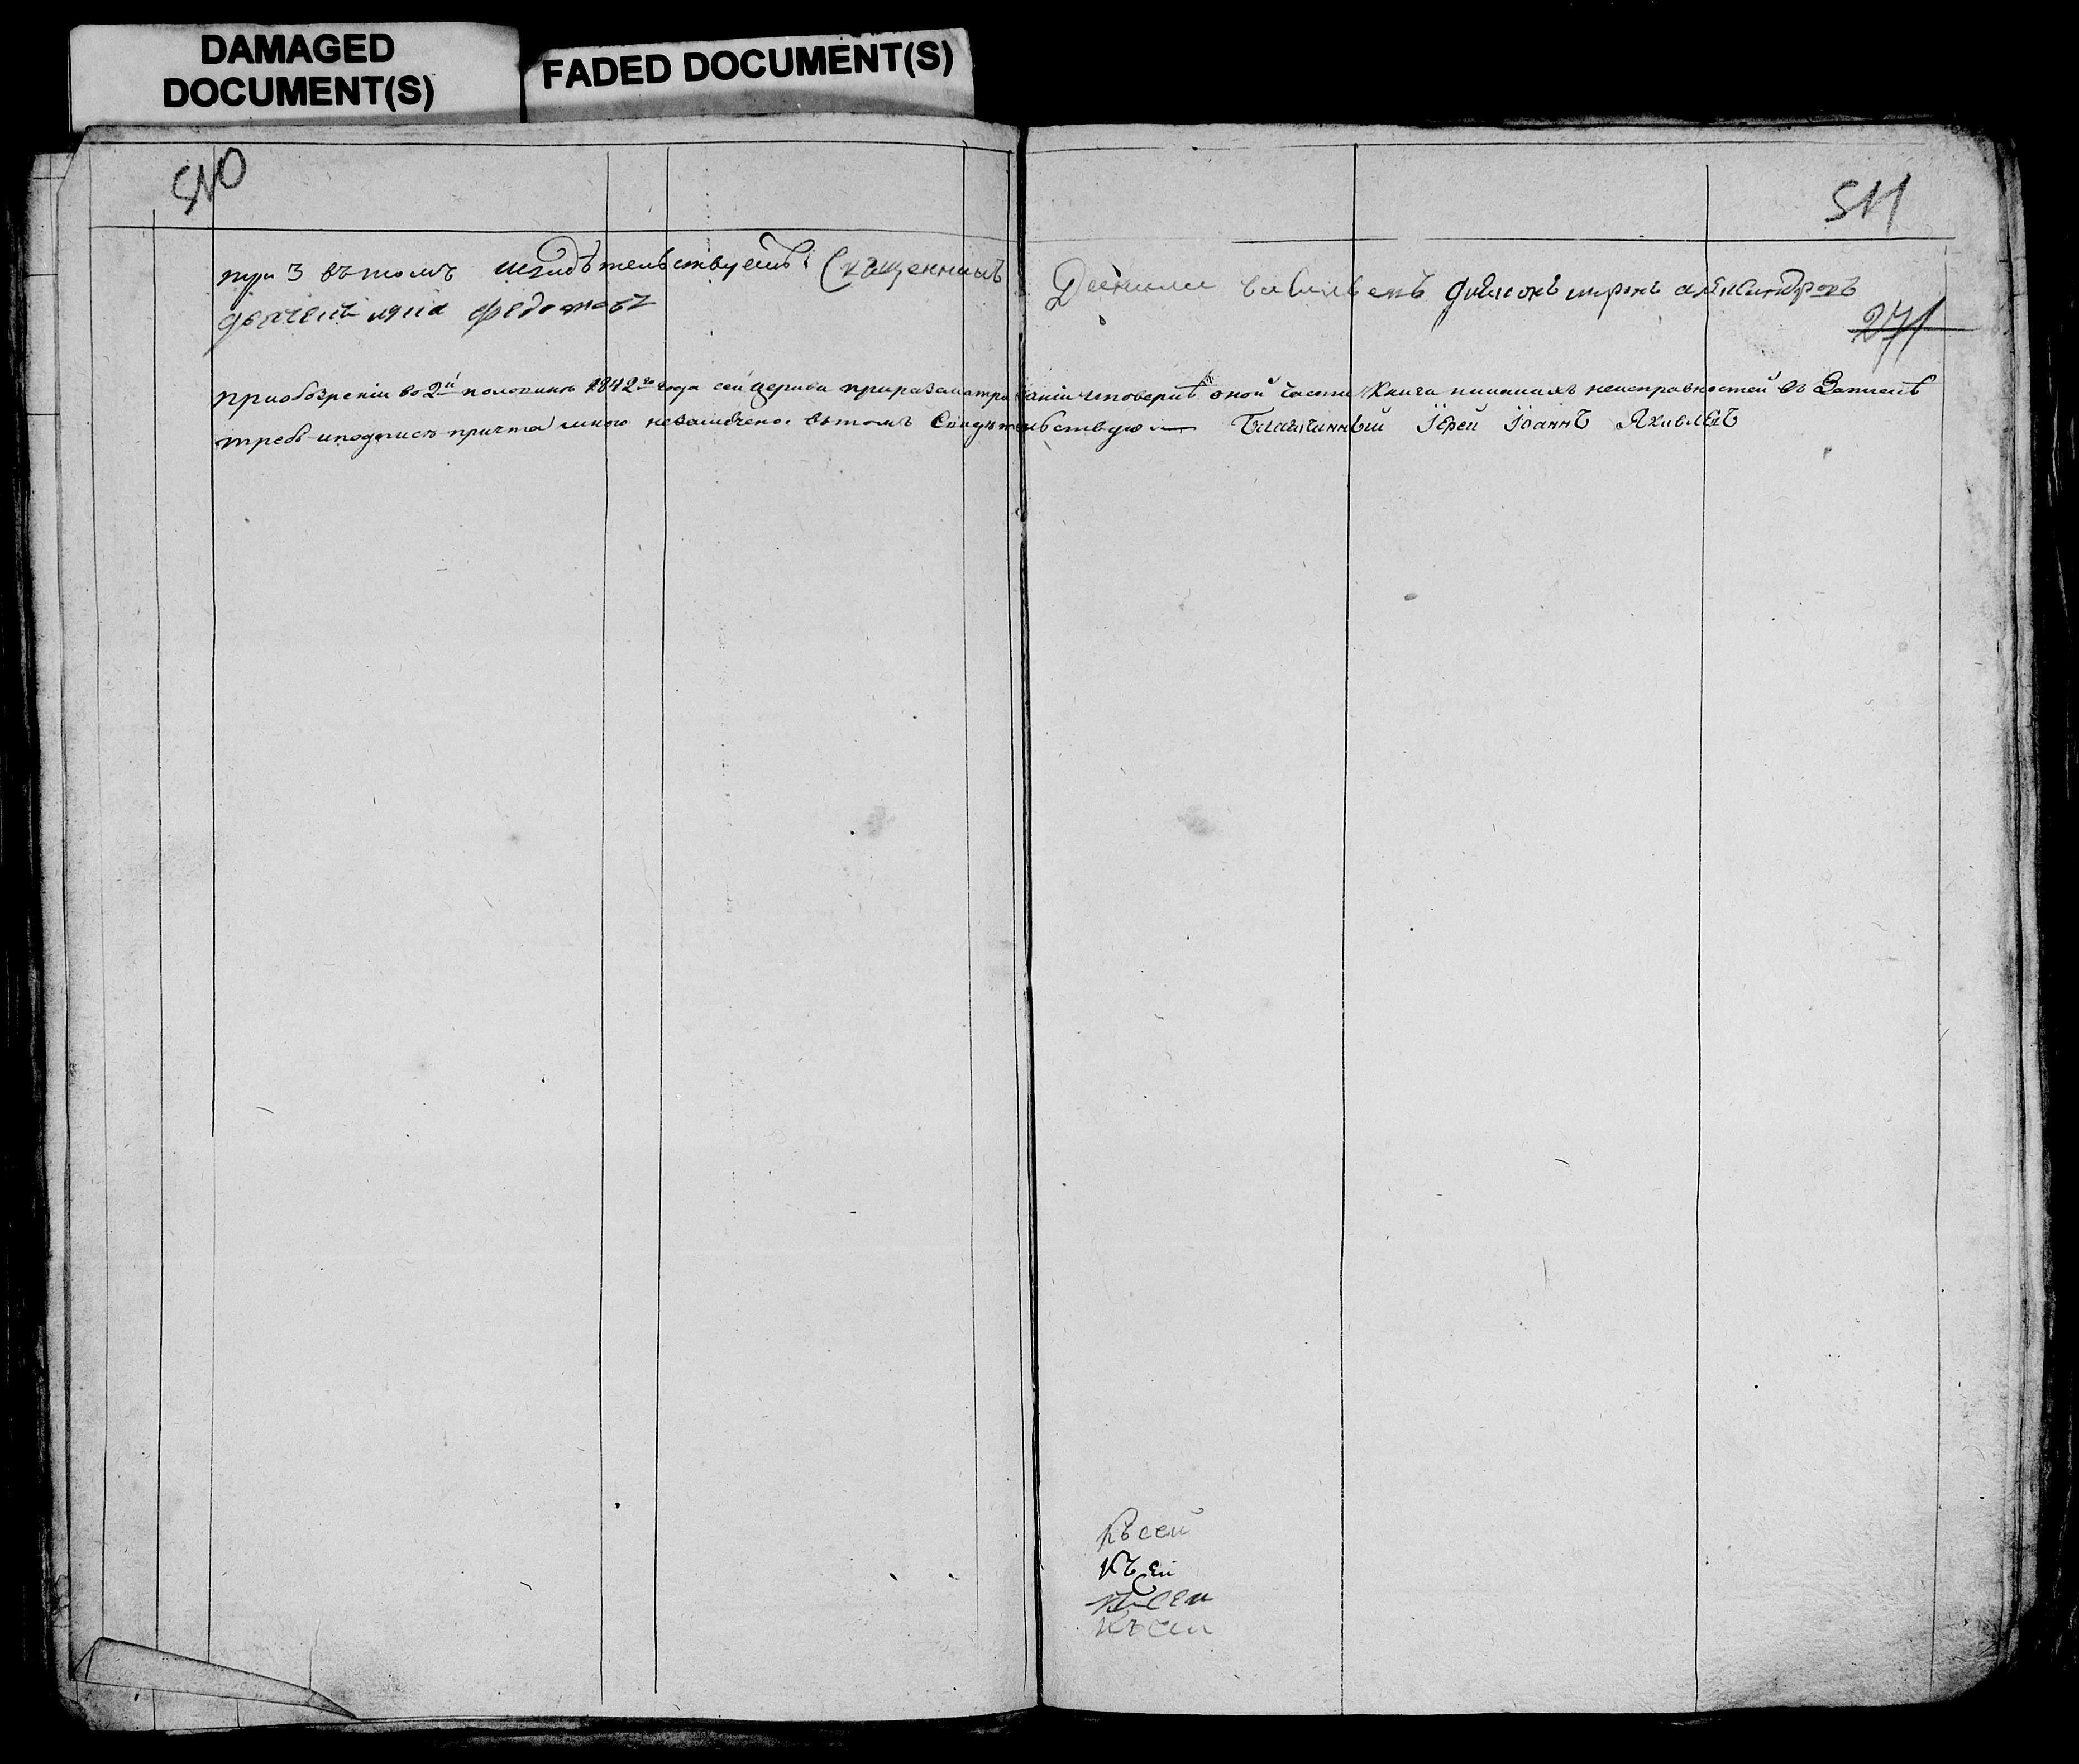 DAMAGED
DOCUMENT(S)
FADED DOCUMENT(S)
510
511
три 3 въ томъ свидѣтельствуемъ: Священникъ Даниил Васильевъ дьяконъ миронъ александровъ
дьячекъ илиа федотовъ
271
При обозрѣніи во 2й половинѣ 1842го года сей церкви при разсматриваніи и повѣркѣ оной части книги никакихъ неисправностей въ Запискѣ
требъ и подписѣ причта мною незамѣчено. въ томъ Свидѣтельствую — Благочинный Іерей Іоаннъ Яковлевъ
Къ сей
Къ Сей
Къ сей
Къ сей